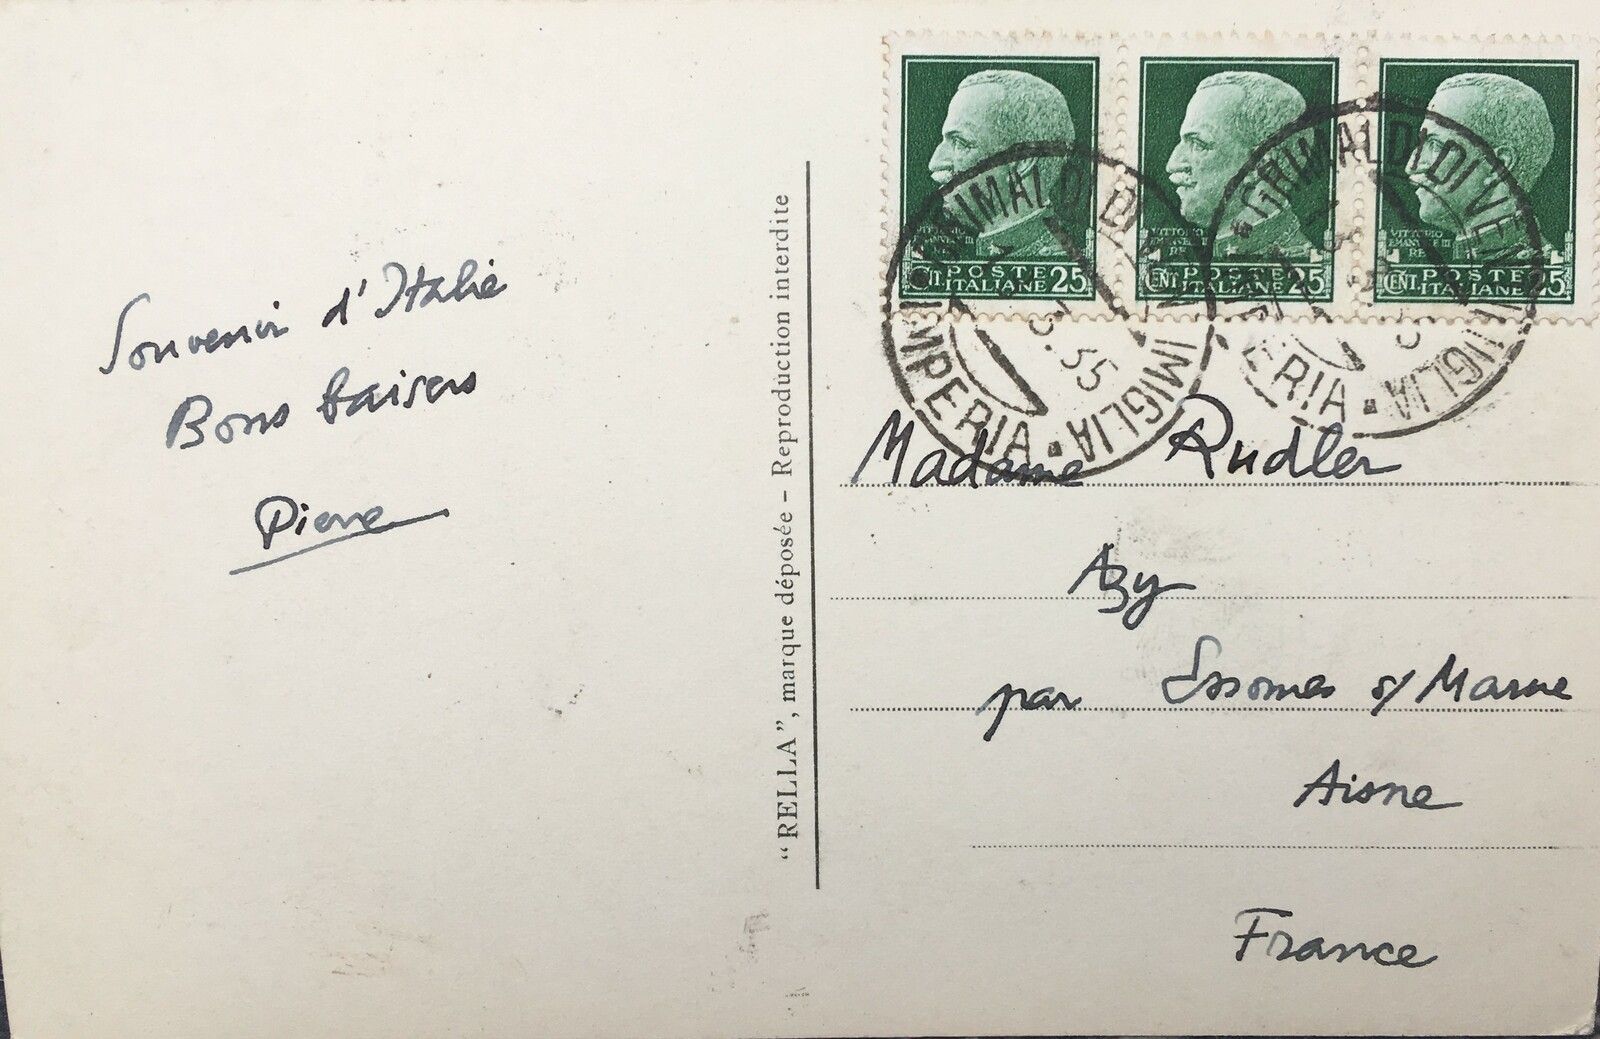 Souvenir d'Italie
Bons baisers
Pierre
"RELLA", marque déposée - Reproduction interdite
VITTORIO EMANUELE III RE
CENT. POSTE ITALIANE 25
VITTORIO EMANUELE III RE
CENT. POSTE ITALIANE 25
VITTORIO EMANUELE III RE
CENT. POSTE ITALIANE 25
GRIMALDI DI VENTIMIGLIA
IMPERIA
GRIMALDI DI VENTIMIGLIA
IMPERIA
Madame Rudler
Azy
par Essomes s/ Marne
Aisne
France